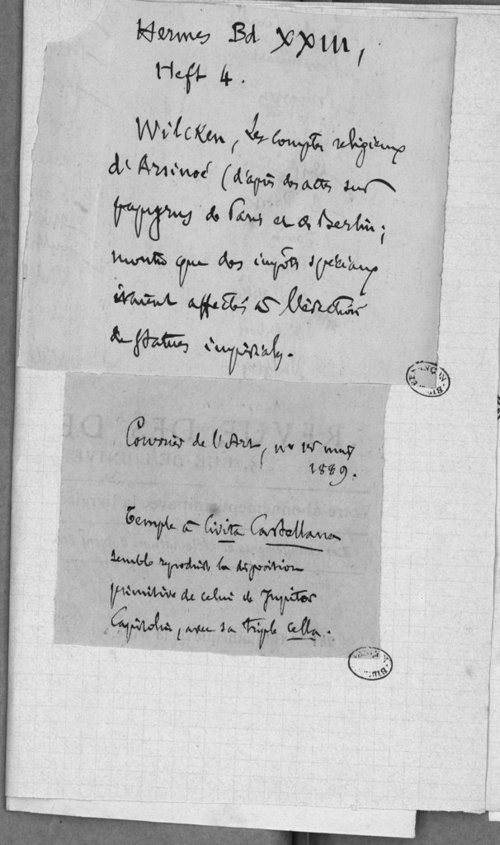 Hermes Bd XXIII,
Heft 4.
Wilcken, Les comptes religieux
d'Arsinoé (d'après des actes sur
papyrus de Paris et de Berlin;
montre que des impôts spéciaux
étaient affectés à l'érection
de statues impériales.
Courrier de l'Art, nº 15 mars
1889.
Temple à Civita Castellana
semble reproduire la disposition
primitive de celui de Jupiter
Capitolin, avec sa triple cella.